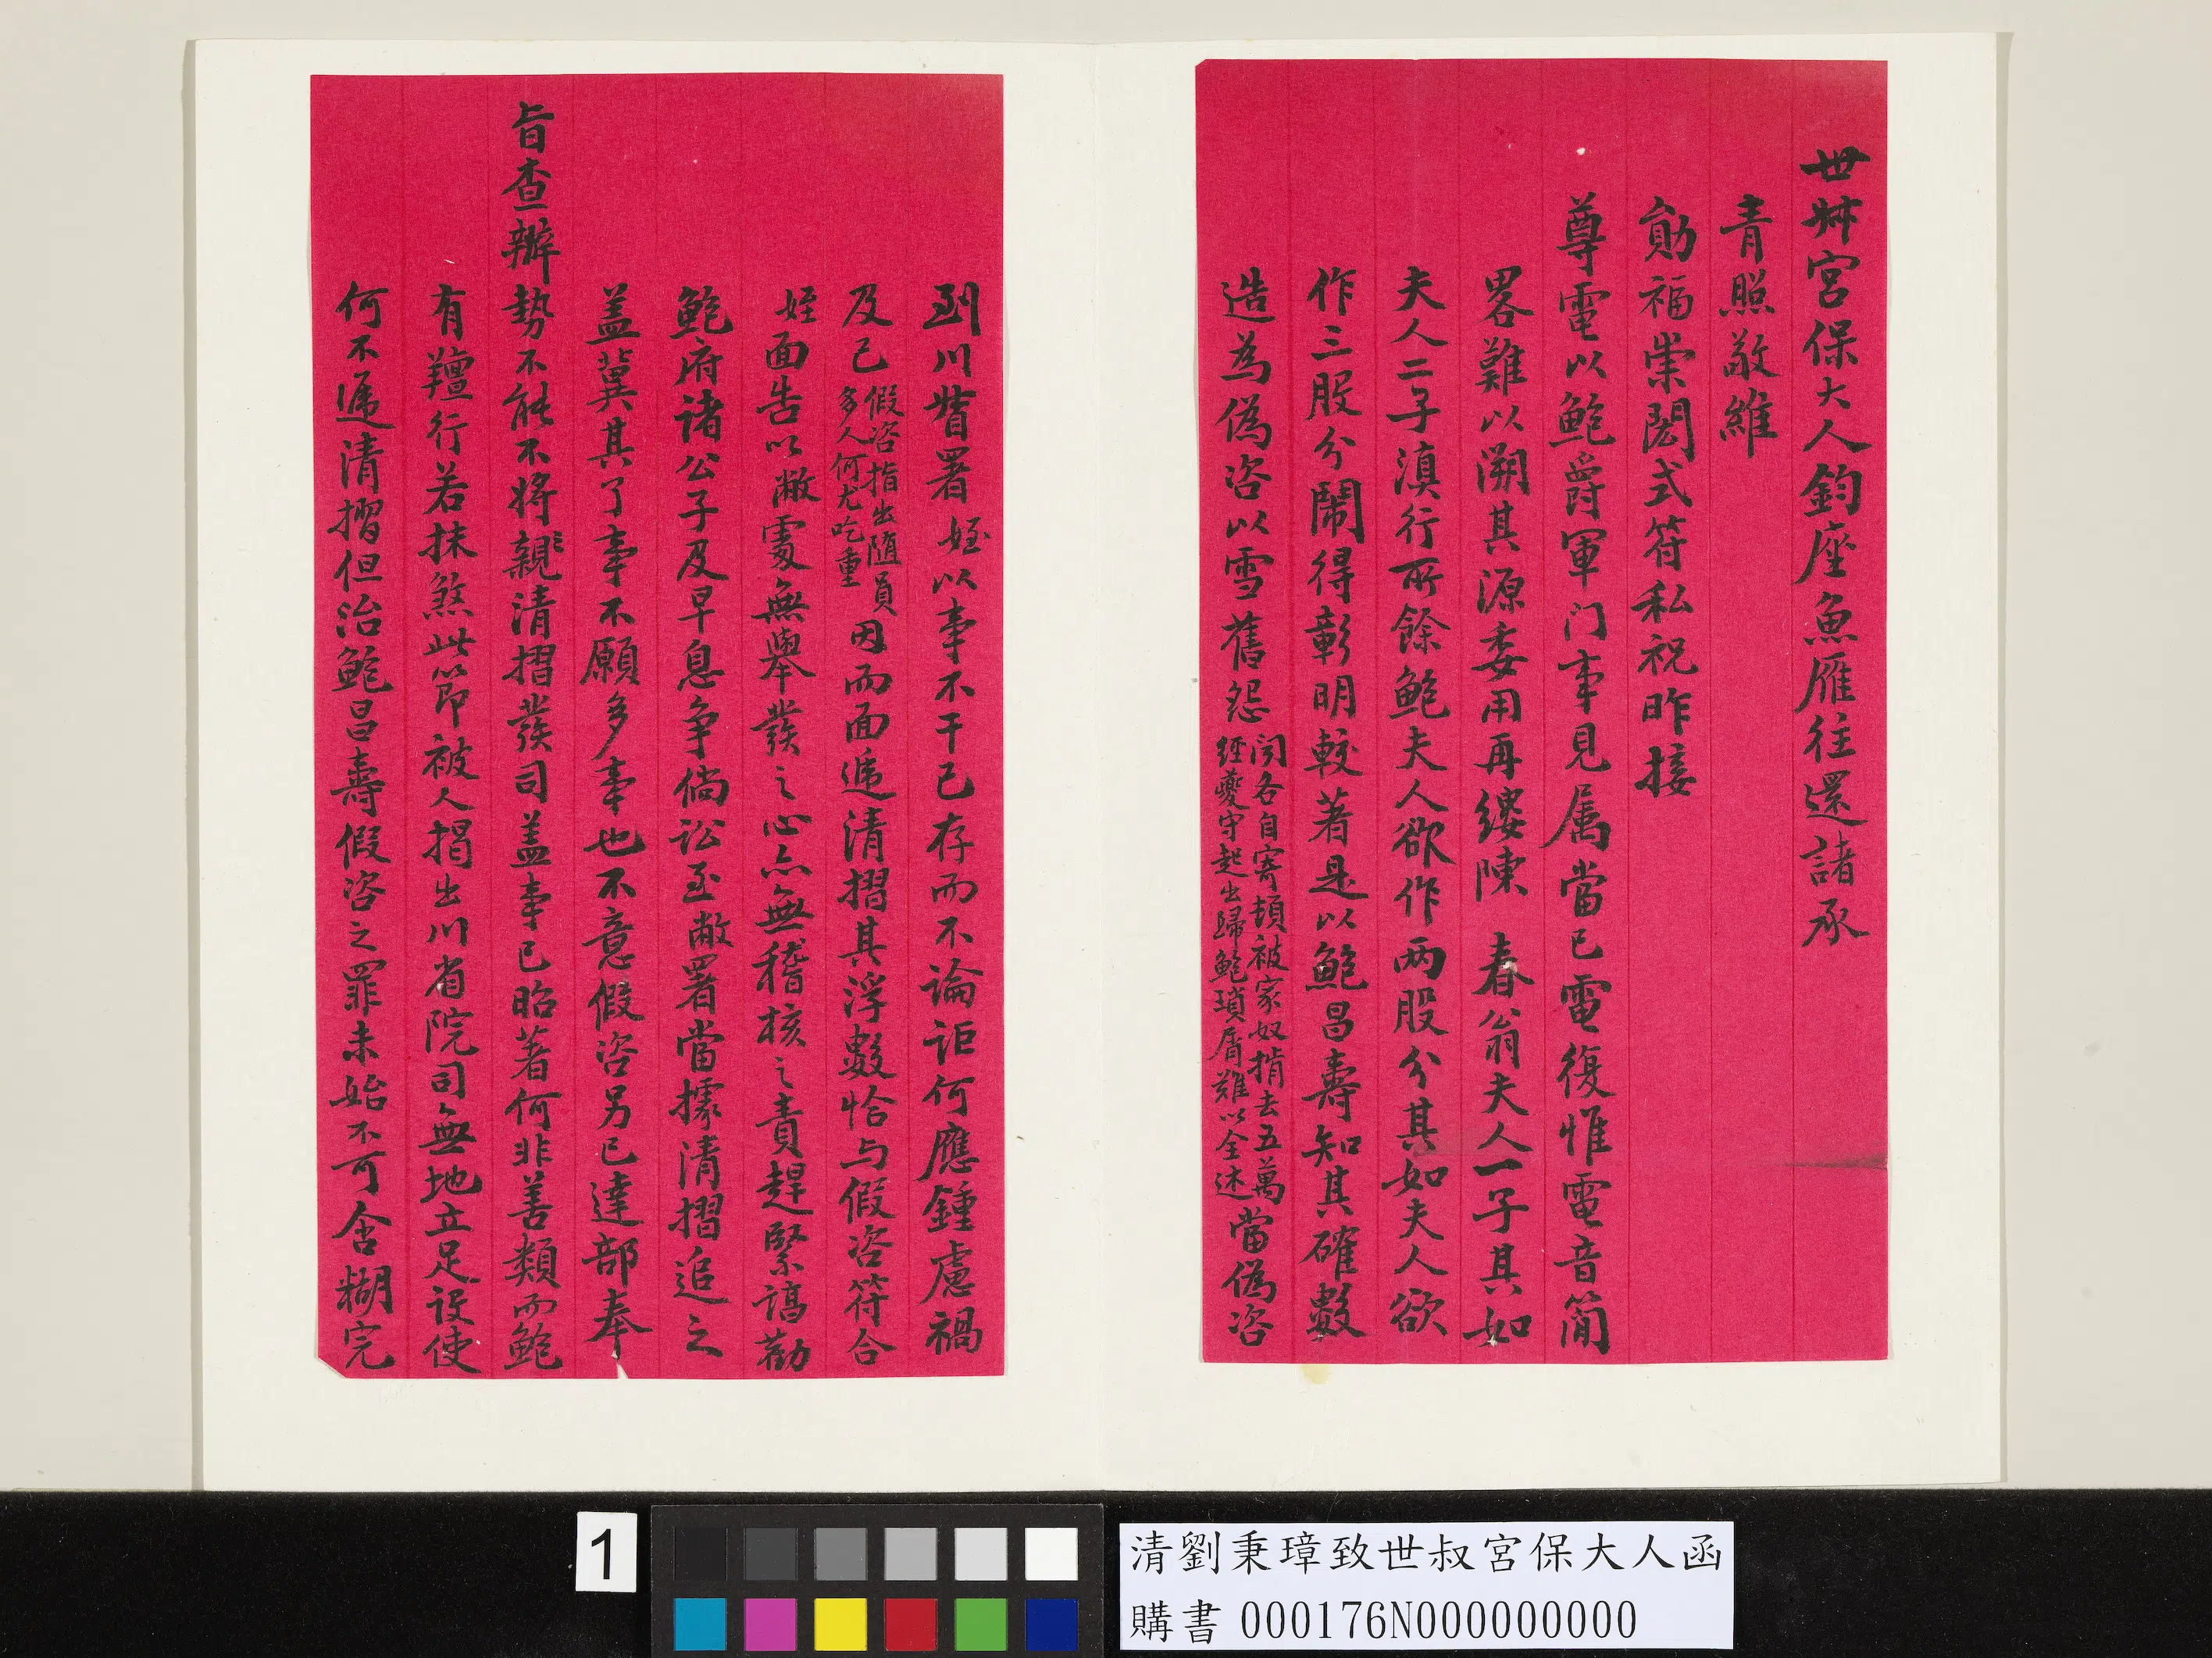 世叔宮保大人鈞座魚雁往還諸承
青照敬維
勛福崇閎式符私祝昨接
尊電以鮑爵軍门事見属當已電復惟電音簡
畧難以溯其源委用再縷陳 春翁夫人一子其如
夫人二子滇行所餘鮑夫人欲作两股分其如夫人欲
作三股分鬧得彰明較著是以鮑昌壽知其確數
造為偽咨以雪舊怨
聞各自寄頓被家奴掯去五萬
經夔守起出歸鮑瑣屑難以全述
當偽咨
到川督署姪以事不干已存而不論詎何應鍾慮禍
及己
假咨指出隨員
多人何尤吃重
因而面遞清摺其浮數恰与假咨符合
姪面告以敝處無舉發之心亦無稽核之責趕緊謁勸
鮑府诸公子及早息争倘訟至敝署當據清摺追之
盖冀其了事不願多事也不意假咨另已達部奉
旨查辦势不能不将親三清摺發司盖事已昭著何非善類而鮑
有羶行若抹煞此節被人揭出川省院司無地立足设使
何不遞清摺但治鮑昌壽假咨之罪未始不可含糊完
1
清劉秉璋致世叔宮保大人函
購書 000176N000000000